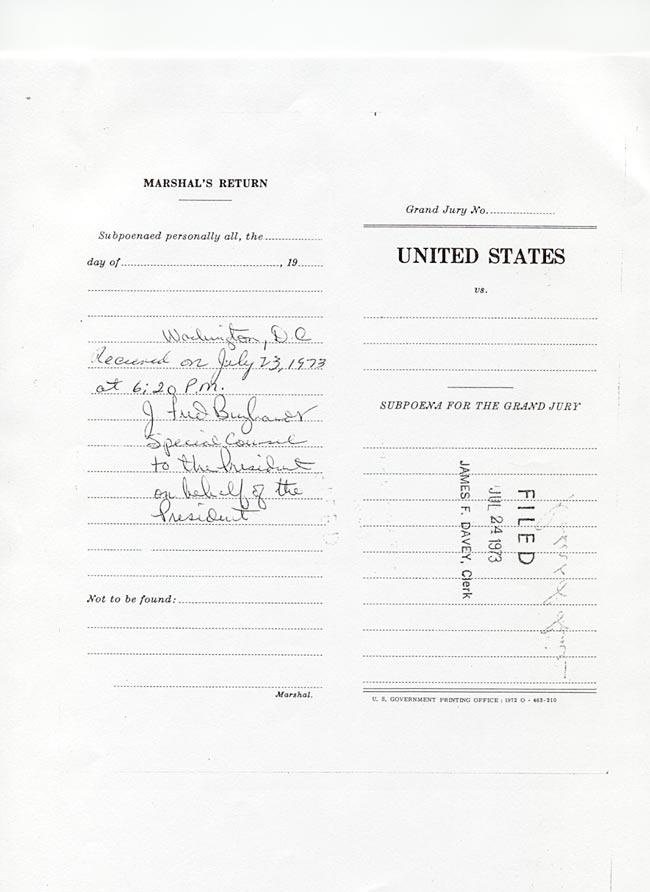 MARSHAL'S RETURN
Subpoenaed personally all, the
day of , 19
Washington, D.C
Received on July 23, 1973
at 6:20 P.M.
J. Fred Buzhardt
Special Counsel
to the President
on behalf of the
President
Not to be found:
Marshal.
Grand Jury No.
UNITED STATES
vs.
SUBPOENA FOR THE GRAND JURY
FILED
JUL 24 1973
JAMES F. DAVEY, Clerk
U. S. GOVERNMENT PRINTING OFFICE : 1972 O - 463-210